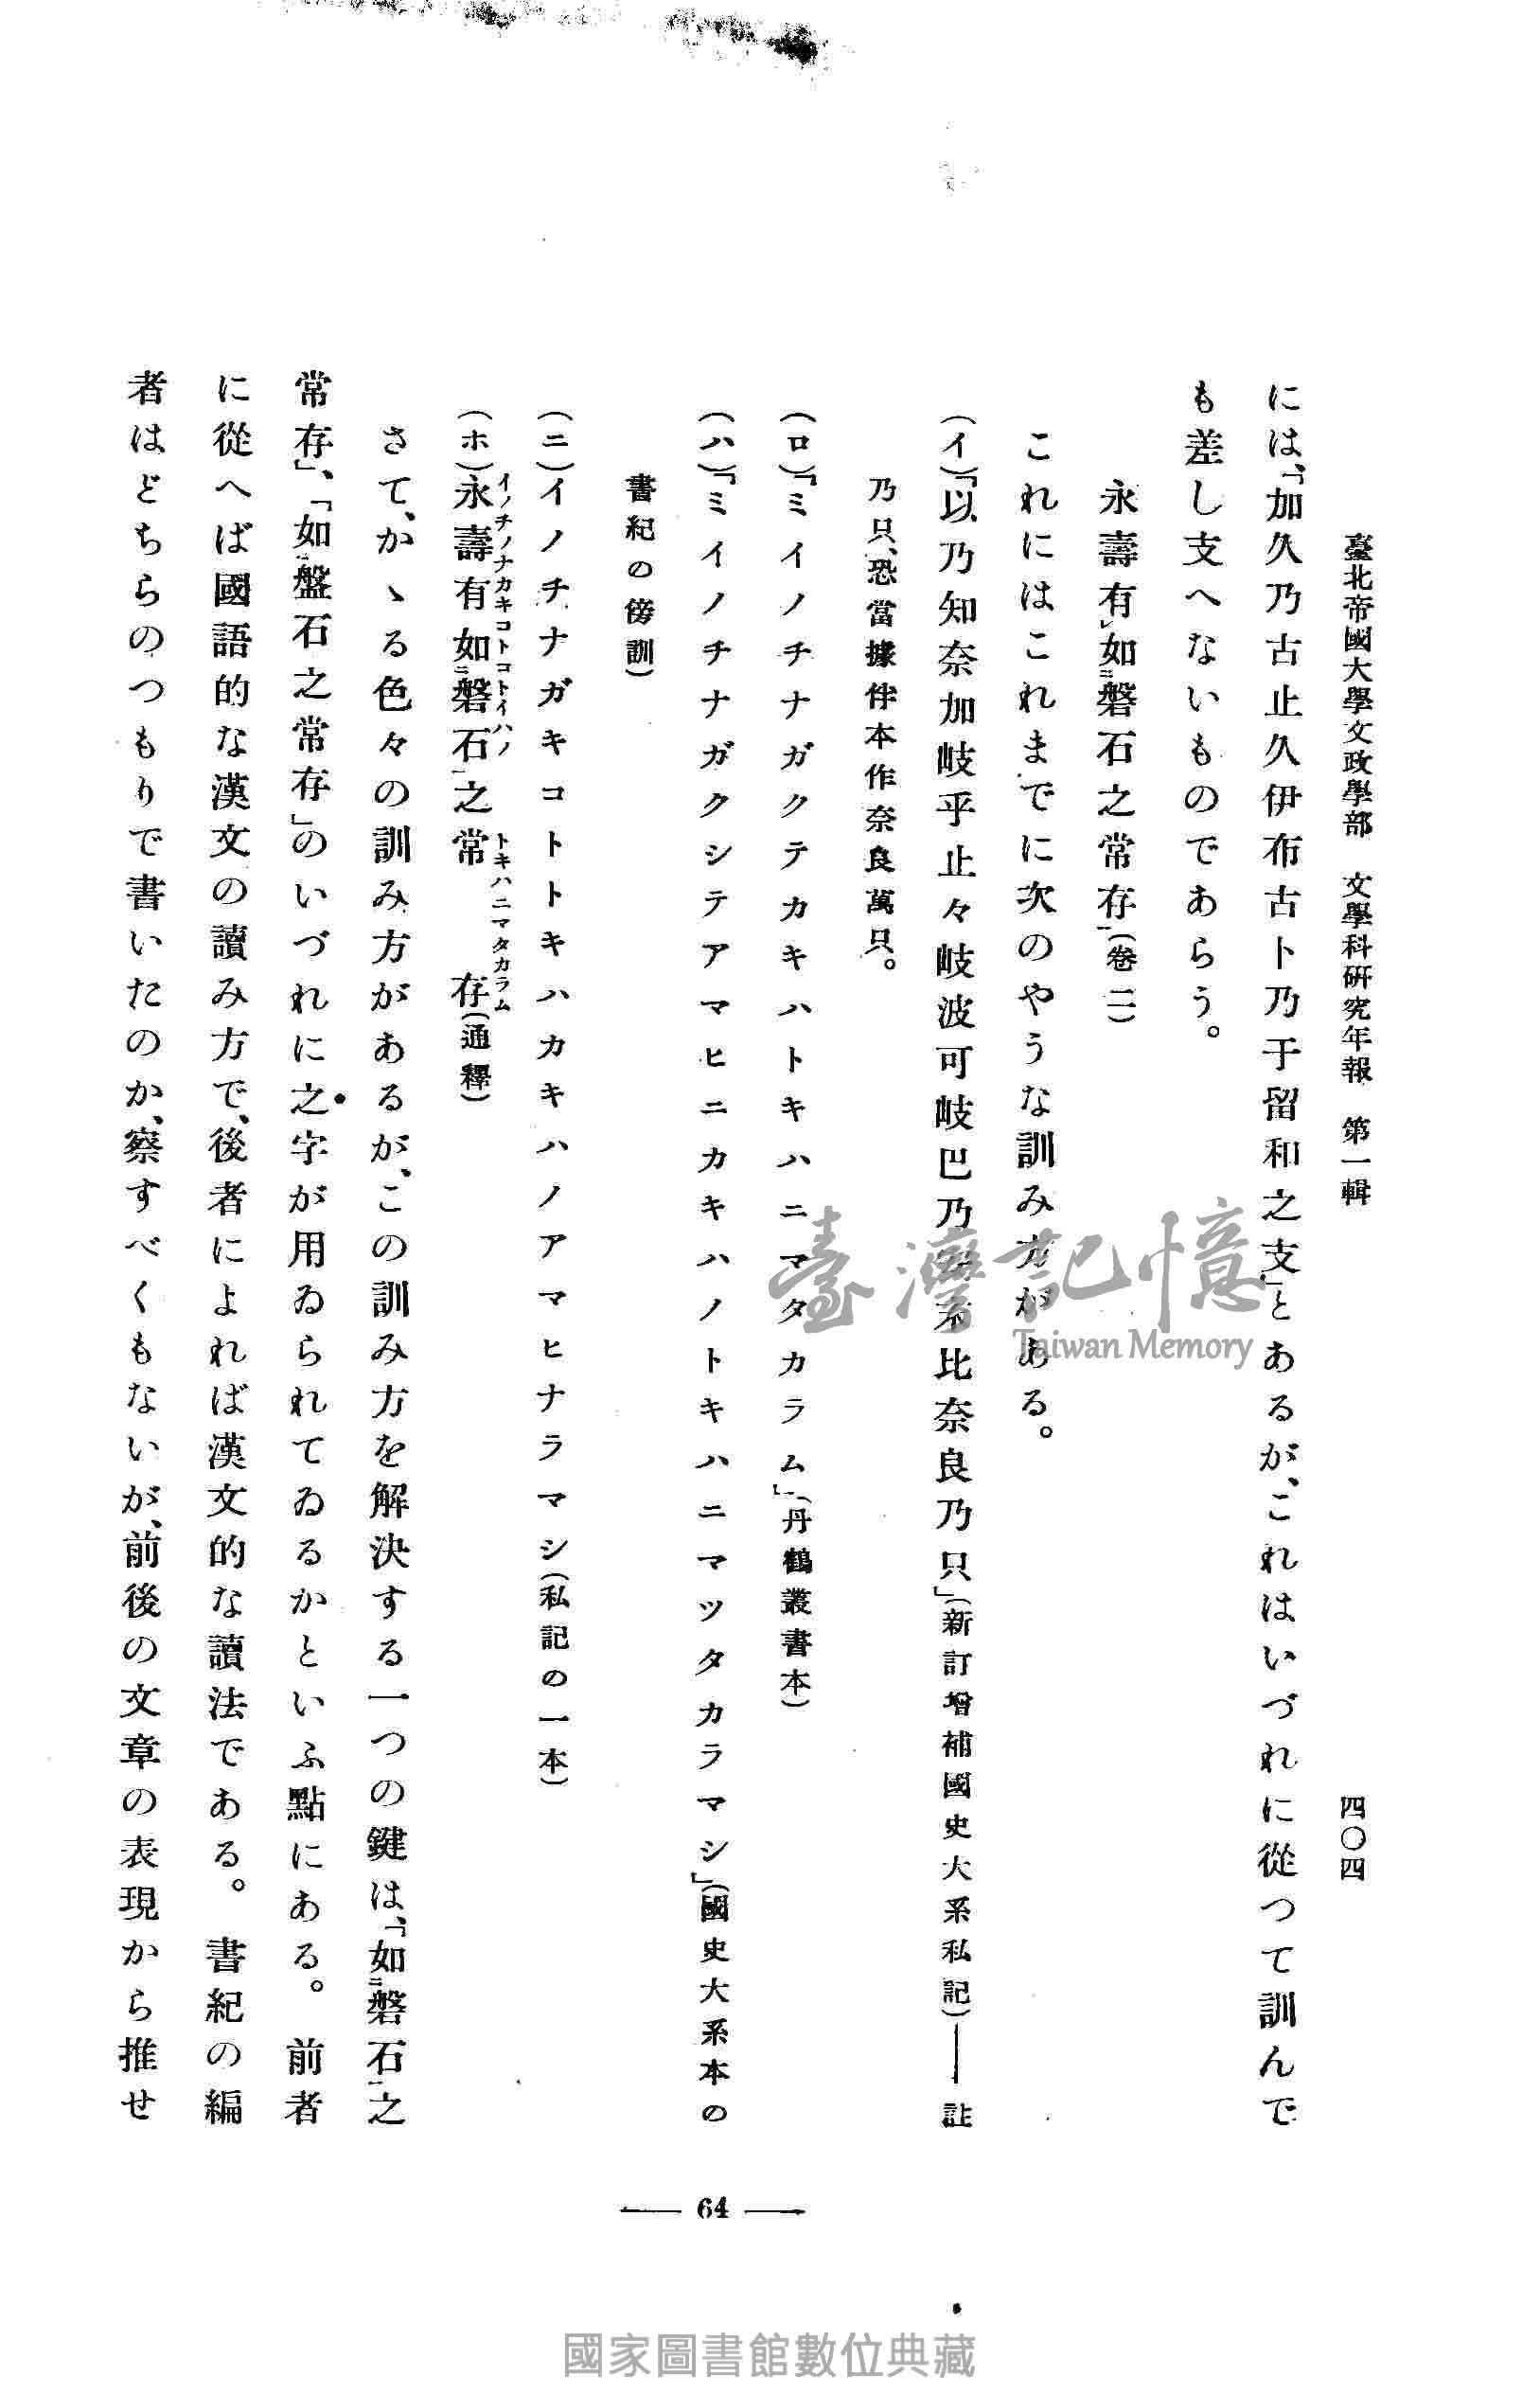 臺北帝國大學文政學部　文學科研究年報　第一輯　四〇四
には、「加久乃古止久伊布古卜乃于留和之支」とあるが、これはいづれに從つて訓んで
も差し支へないものであらう。
永壽有レ如ニ磐石之常存一(卷二)
これにはこれまでに次のやうな訓み方がある。
(イ)「以乃知奈加岐乎止々岐波可岐巴乃比奈良乃只」(新訂增補國史大系私記)——註
乃只、恐當據伴本作奈良萬只。
(ロ)「ミイノチナガクテカキハトキハニマタカラム」(丹鶴叢書本)
(ハ)「ミイノチナガクシテアマヒニカキハノトキハニマツタカラマシ」(國史大系本の
書紀の傍訓)
(ニ)イノチナガキコトトキハカキハノアマヒナラマシ(私記の一本)
イノチノナカキコトコトイハノ　トキハニマタカラム
(ホ)永壽有如ニ磐石一之常存(通釋)
さて、かゝる色々の訓み方があるが、この訓み方を解決する一つの鍵は、「如ニ磐石一之
常存」、「如ニ盤石之常存」のいづれに之字が用ゐられてゐるかといふ點にある。前者
に從へば國語的な漢文の讀み方で、後者によれば漢文的な讀法である。書紀の編
者はどちらのつもりで書いたのか、察すべくもないが、前後の文章の表現から推せ
64
臺灣記憶
Taiwan Memory
國家圖書館數位典藏